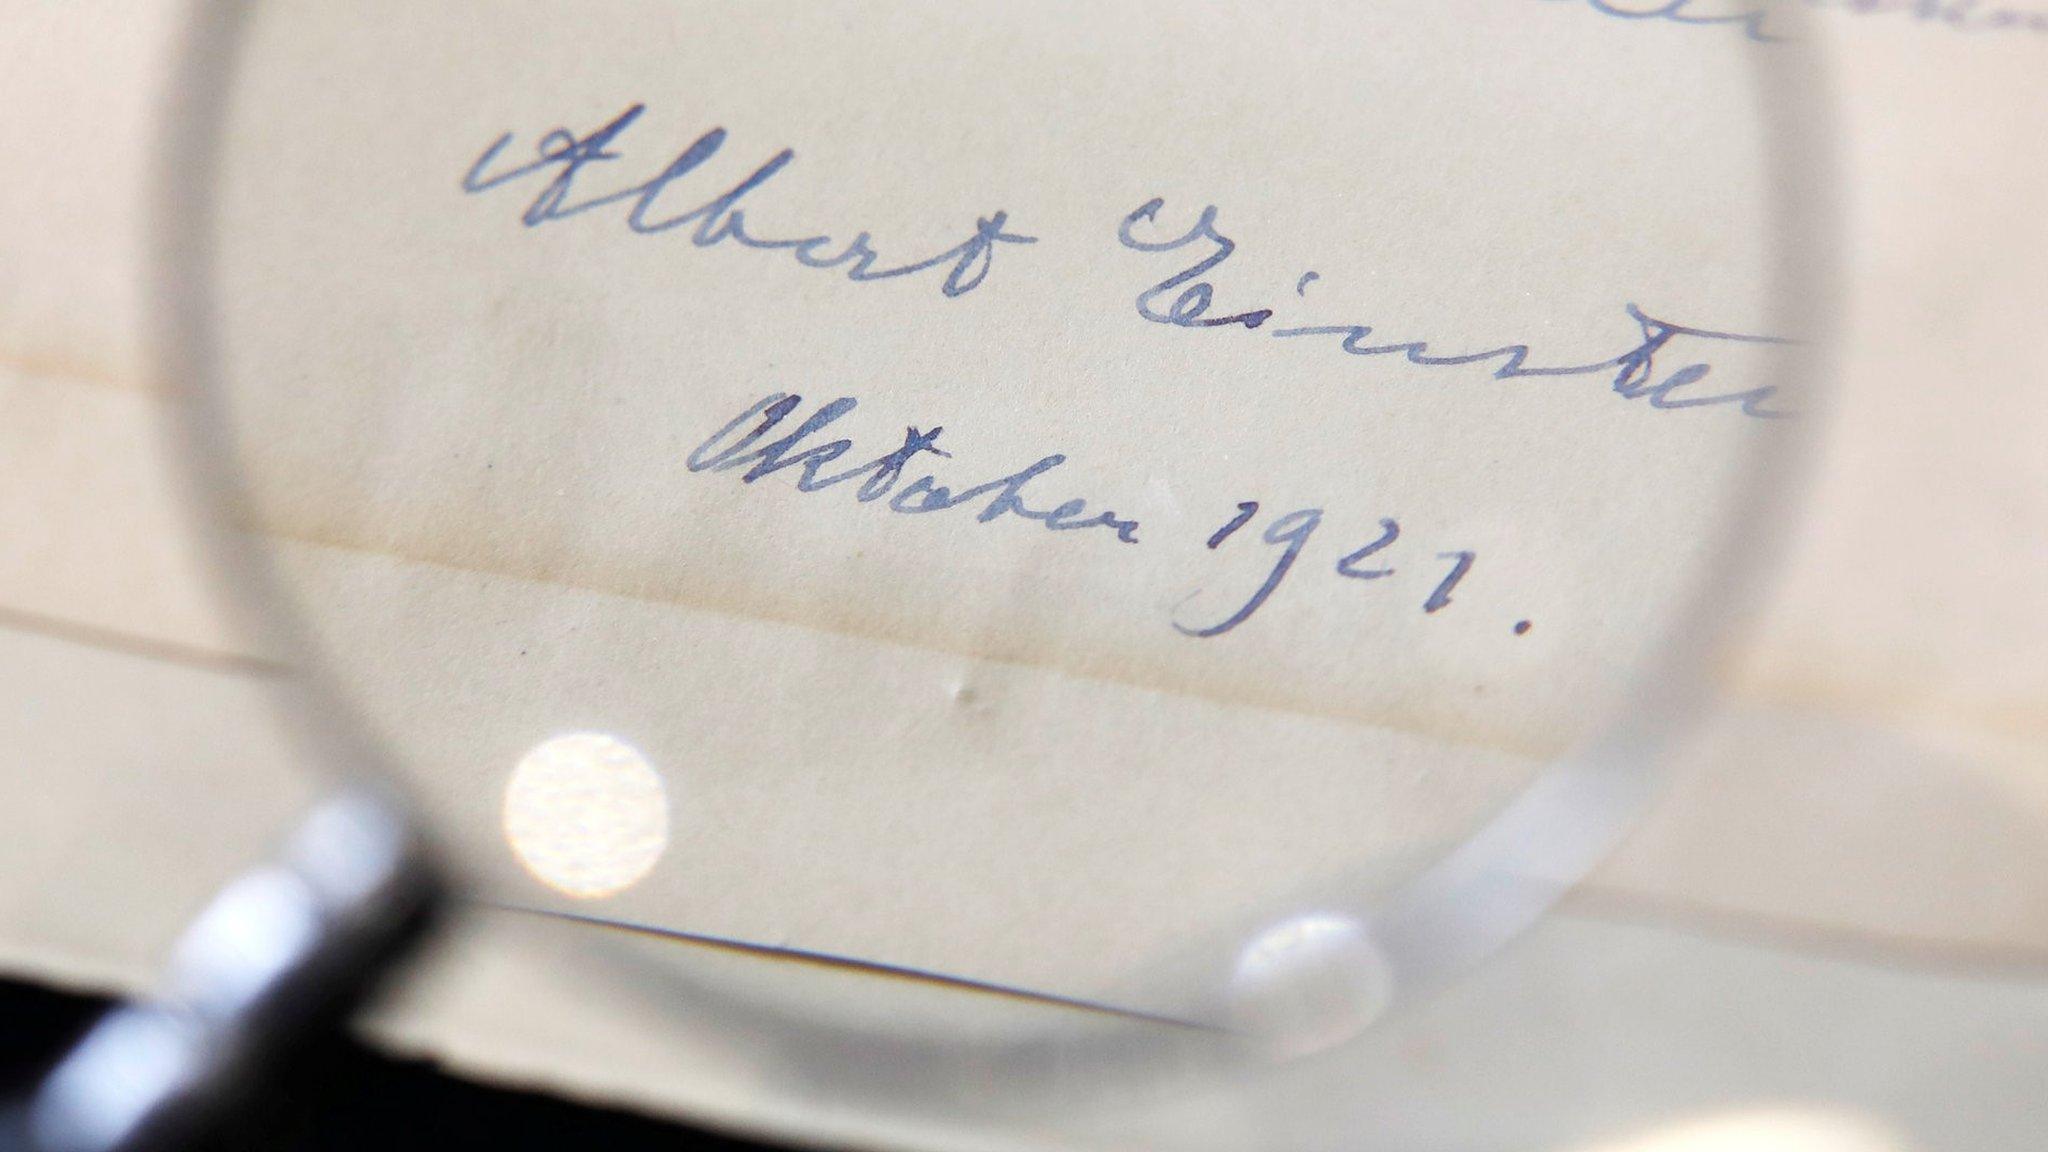 Albert Einstein
Oktober 1921.